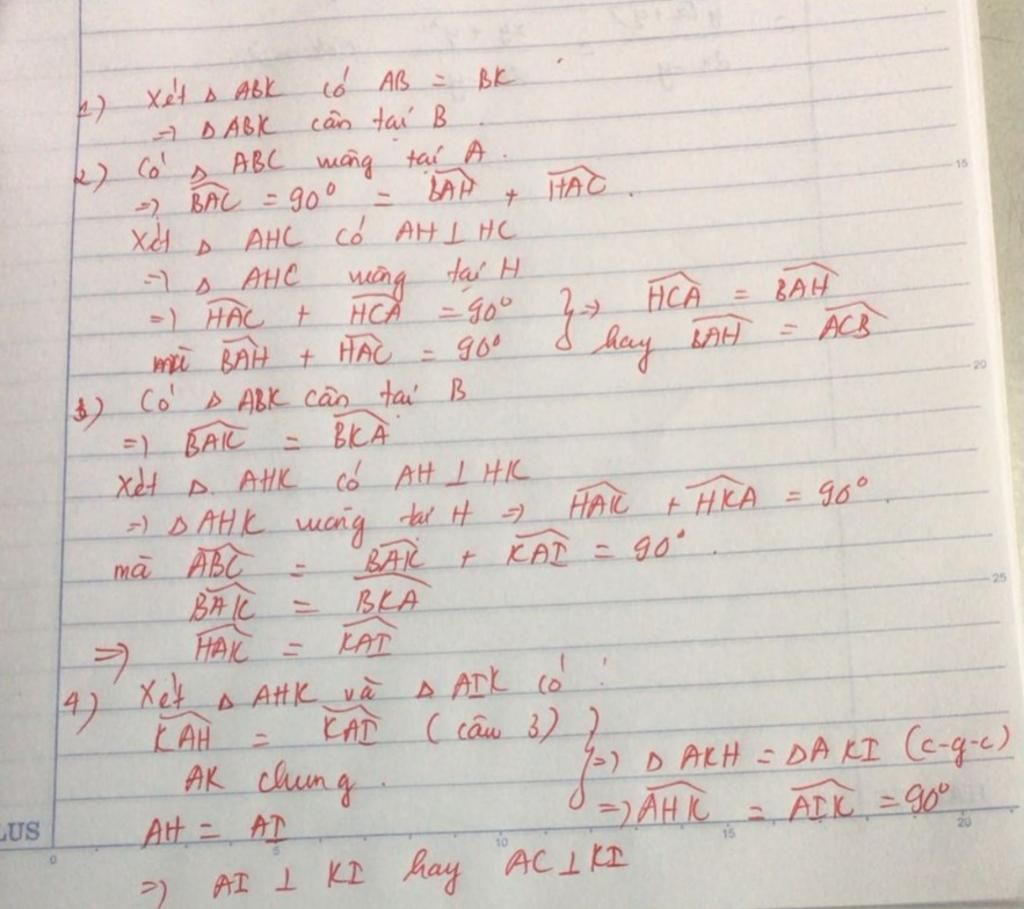 1) Xét Δ ABK có AB = BK
=> Δ ABK cân tại B
2) Có Δ ABC vuông tại A.
=> \widehat{BAC} = 90° = \widehat{BAH} + \widehat{HAC}.
Xét Δ AHC có AH ⊥ HC
=> Δ AHC vuông tại H
=> \widehat{HAC} + \widehat{HCA} = 90° } => \widehat{HCA} = \widehat{BAH}
mà \widehat{BAH} + \widehat{HAC} = 90° hay \widehat{BAH} = \widehat{ACB}
3) Có Δ ABK cân tại B
=> \widehat{BAK} = \widehat{BKA}
Xét Δ AHK có AH ⊥ HK
=> Δ AHK vuông tại H => \widehat{HAK} + \widehat{HKA} = 90°.
mà \widehat{ABC} = \widehat{BAK} + \widehat{KAI} = 90°.
\widehat{BAK} = \widehat{BKA}
=> \widehat{HAK} = \widehat{KAI}
4) Xét Δ AHK và Δ AIK có :
\widehat{KAH} = \widehat{KAI} (câu 3) }
AK chung. => Δ AKH = Δ AKI (c-g-c)
AH = AI => \widehat{AHK} = \widehat{AIK} = 90°
=> AI ⊥ KI hay AC ⊥ KI
LUS
0 5 10 15 20
15
20
25